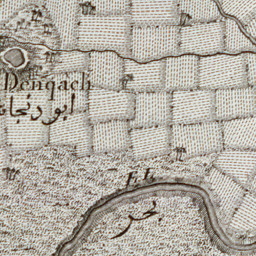 Denqach
ابو
EL
بحر